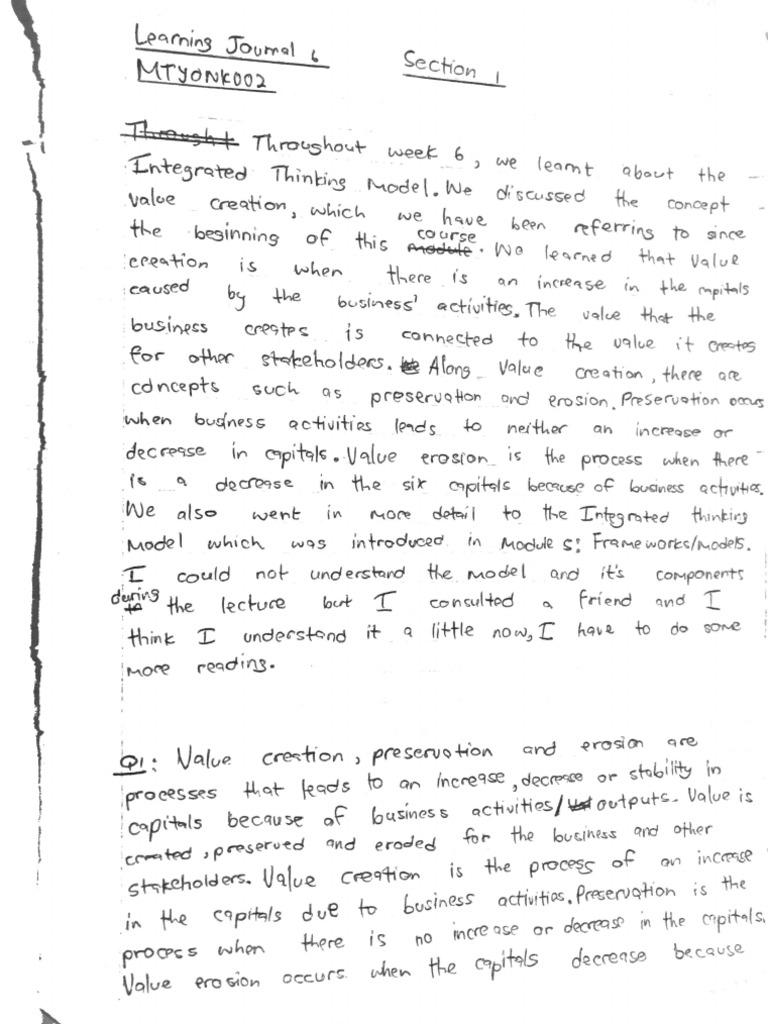 Learning Journal 6 Section 1
MTYONK002
Throught Throughout week 6, we learnt about the
Integrated Thinking Model. We discussed the concept
value creation, which we have been referring to since
the beginning of this module course. We learned that value
creation is when there is an increase in the capitals
caused by the business' activities. The value that the
business creates is connected to the value it creates
for other stakeholders. Along value creation, there are
concepts such as preservation and erosion. Preservation occurs
when business activities leads to neither an increase or
decrease in capitals. Value erosion is the process when there
is a decrease in the six capitals because of business activities.
We also went in more detail to the Integrated thinking
Model which was introduced in Module 5: Frameworks/Models.
I could not understand the model and it's components
during the lecture but I consulted a friend and I
think I understand it a little now, I have to do some
more reading.
Q1: Value creation, preservation and erosion are
processes that leads to an increase, decrease or stability in
capitals because of business activities/ outputs. Value is
created, preserved and eroded for the business and other
stakeholders. Value creation is the process of an increase
in the capitals due to business activities. Preservation is the
process when there is no increase or decrease in the capitals.
Value erosion occurs when the capitals decrease because